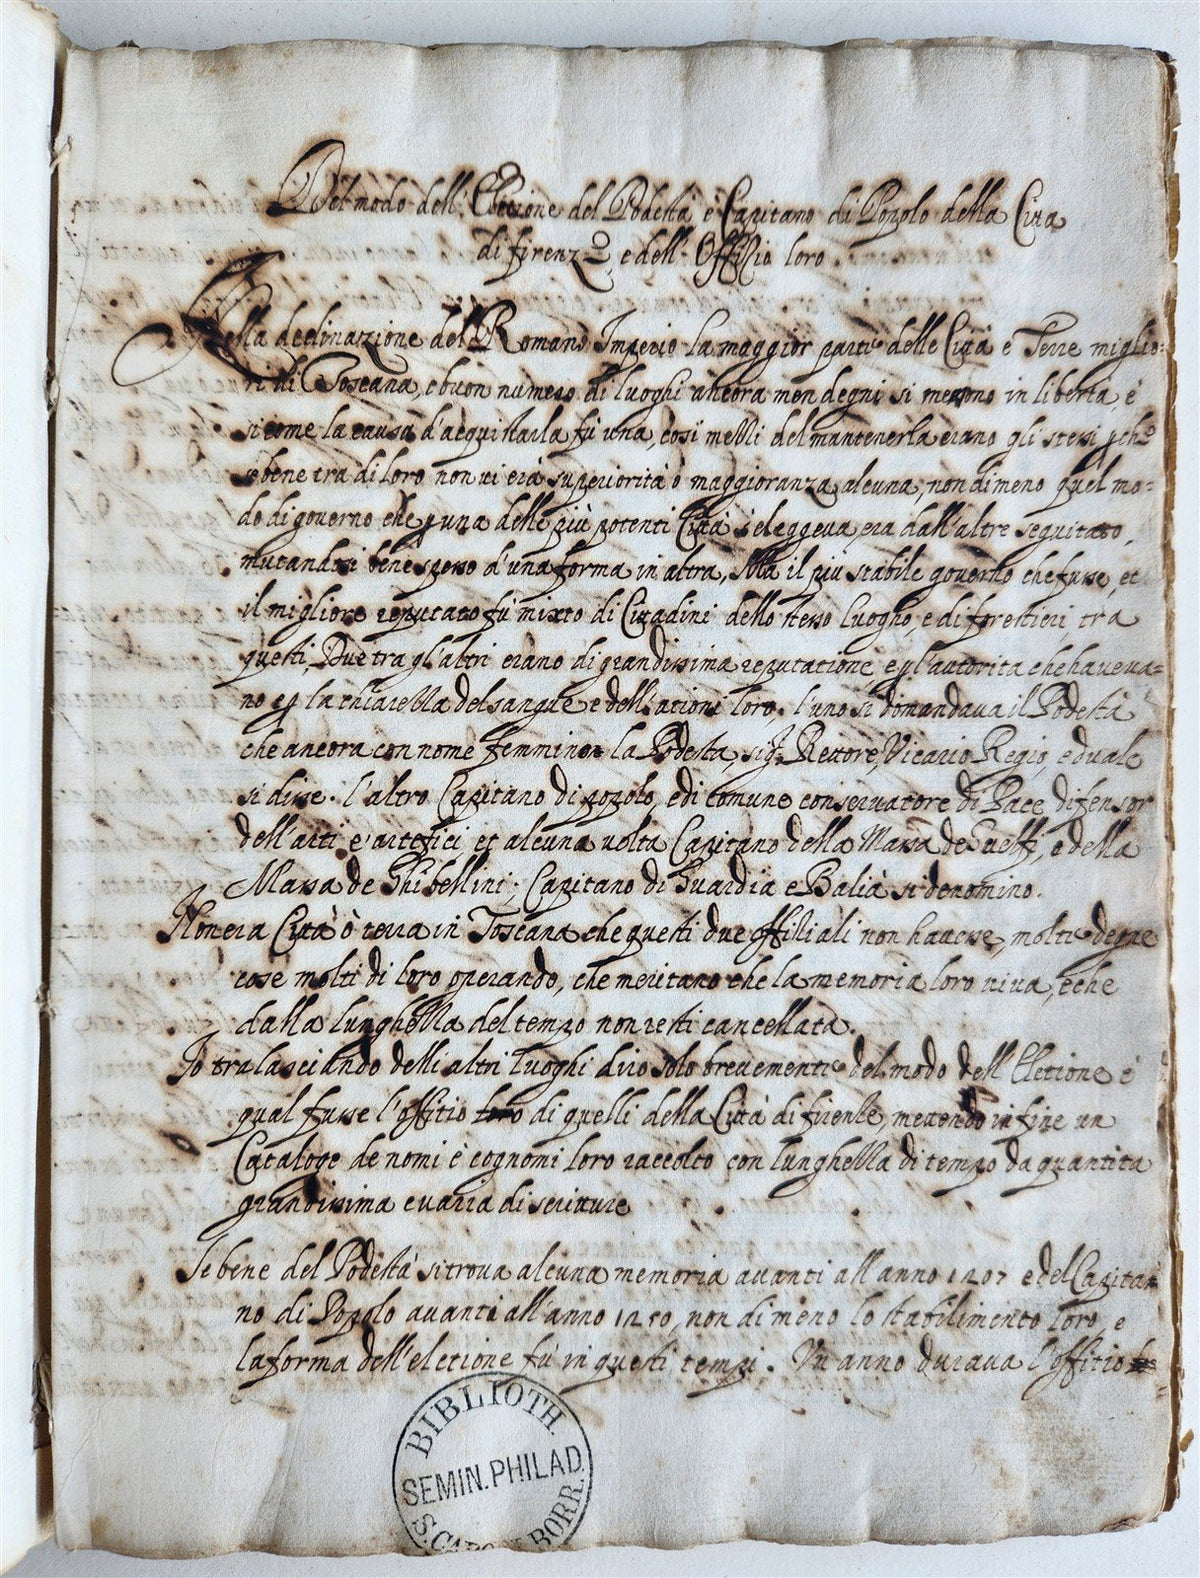 Del modo dell'Elezione del Podestà e Capitano di Popolo della Città
di firenze, e dell'Offitio loro
Nella declinazzione del Romano Imperio la maggior parte delle Città e Terre miglio=
ri di Toscana, e buon numero di luoghi ancora men degni si messono in libertà, e
si come la causa d'acquistarla fù una, così mezzi del mantenerla erano gli stessi pche
se bene tra di loro non vi era superiorità ò maggioranza alcuna, non dimeno quel mo=
do di governo che p una delle più potenti Città s'eleggeva, era dall'altre seguitato,
mutandosi bene spesso d'una forma in altra, Ma il più stabile governo che fusse, et
il migliore reputato fù mixto di Cittadini dello stesso luogho, e di forestieri, tra
questi, Due tra gl'altri erano di grandissima reputatione e p l'autorità che haveva=
no e p la chiarezza del sangue e dell'ationi loro. l'uno si domandava il Podestà
che ancora con nome femminino la Podestà, sig.re Rettore, Vicario Regio, e duale
si disse. l'altro Capitano di popolo, e di comune conservatore di Pace, difensor
dell'arti e artefici et alcuna volta Capitano della Massa de Guelfi, e della
Massa de Ghibellini; Capitano di Guardia e Balià si denominò.
Non era Città ò terra in Toscana che questi due offitiali non havesse, molte degne
cose molti di loro operando, che meritano che la memoria loro viva, e che
dalla lunghezza del tempo non resti cancellata.
Io tralasciando delli altri luoghi dirò solo brevemente del modo dell'Eletione e
qual fusse l'offitio loro di quelli della Città di firenze, mettendo in fine un
Catalogo de nomi e cognomi loro raccolto con lunghezza di tempo da quantità
grandissima e varia di scritture
Se bene del Podestà si trova alcuna memoria avanti all'anno 1207 e del Capita=
no di Popolo avanti all'anno 1250, non di meno lo stabilimento loro, e
la forma dell'eletione fù in questi tempi. Un anno durava l'offitio
BIBLIOTH.
SEMIN. PHILAD.
S. CAROLI BORR.